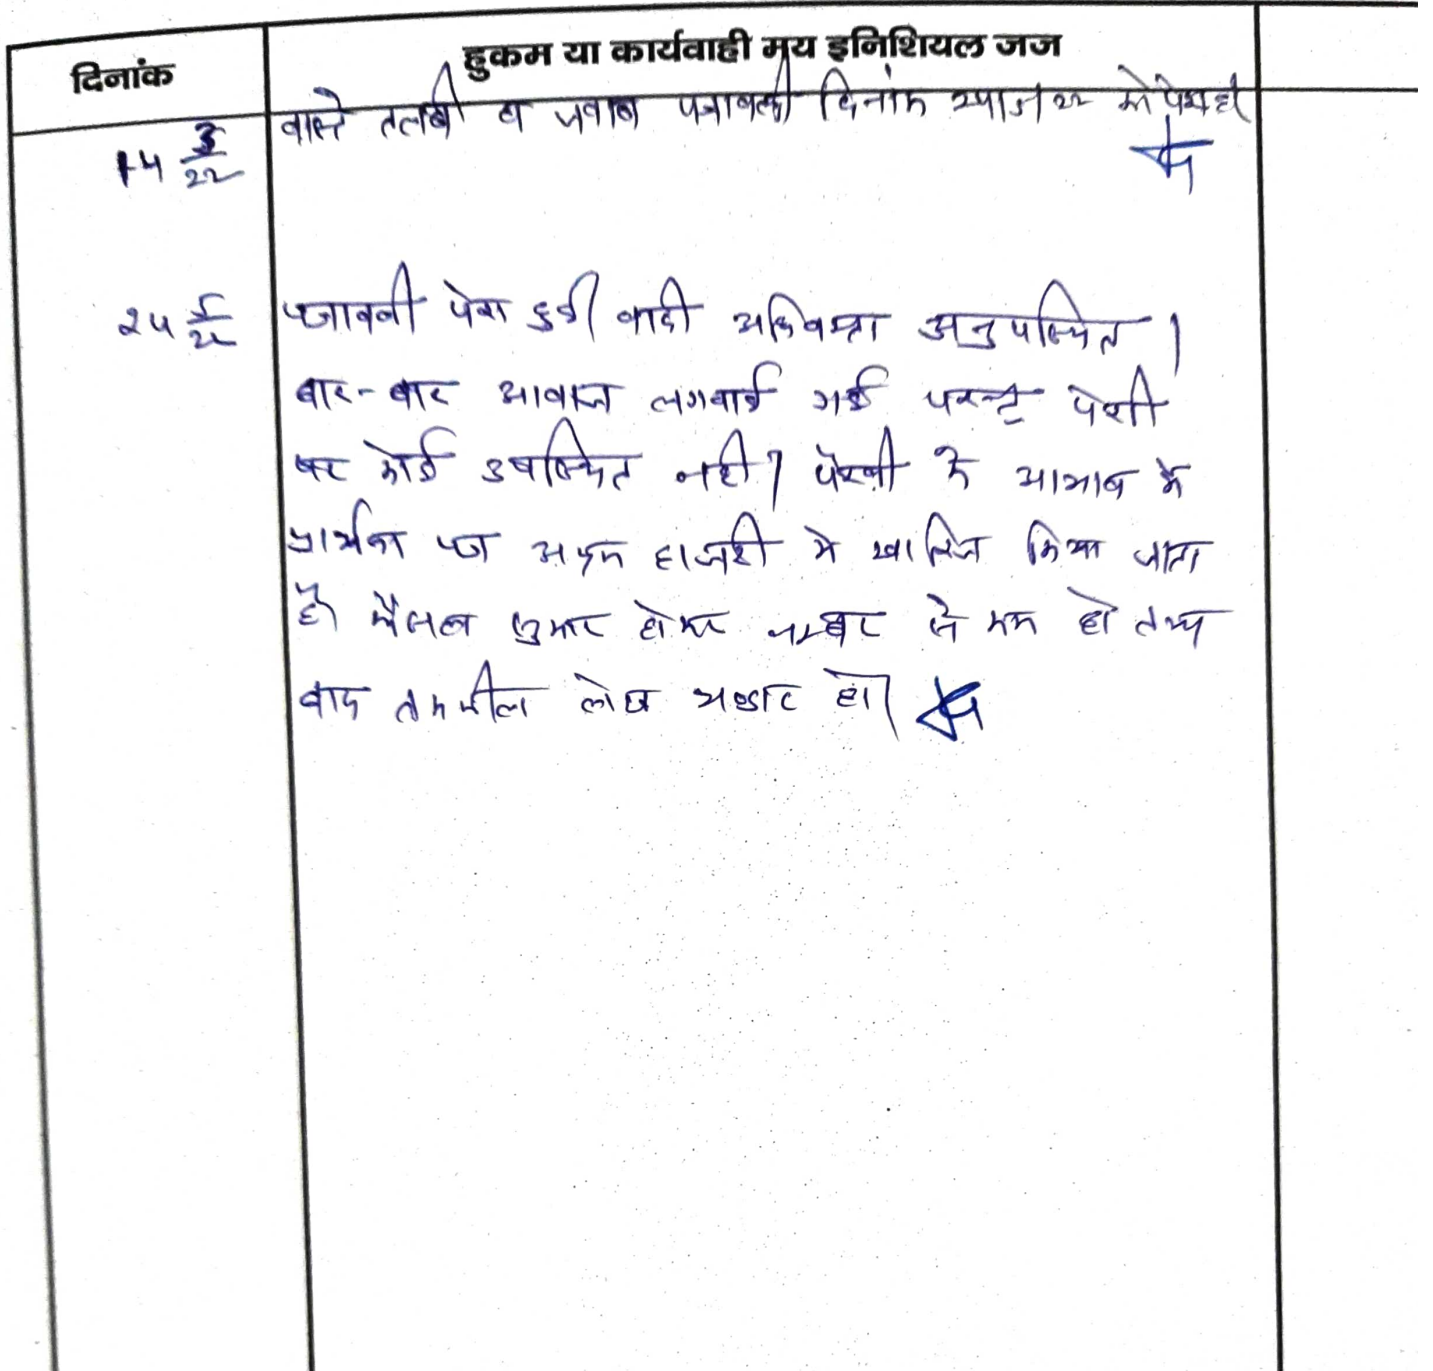 दिनांक
हुकम या कार्यवाही मय इनिशियल जज
वास्ते तलबी व जवाब पत्रावली दिनांक को पेश हो
14 3/22
24 5/22 पत्रावली पेश हुई। वादी अधिवक्ता अनुपस्थित।
बार-बार आवाज लगवाई गई परन्तु पेशी
पर कोई उपस्थित नही। पैरवी के आभाव मे
प्रार्थना पत्र अदम हाजरी मे खारिज किया जाता
है। फैसल शुमार होकर नम्बर से कम हो
बाद तकमील लेख भण्डार हो।